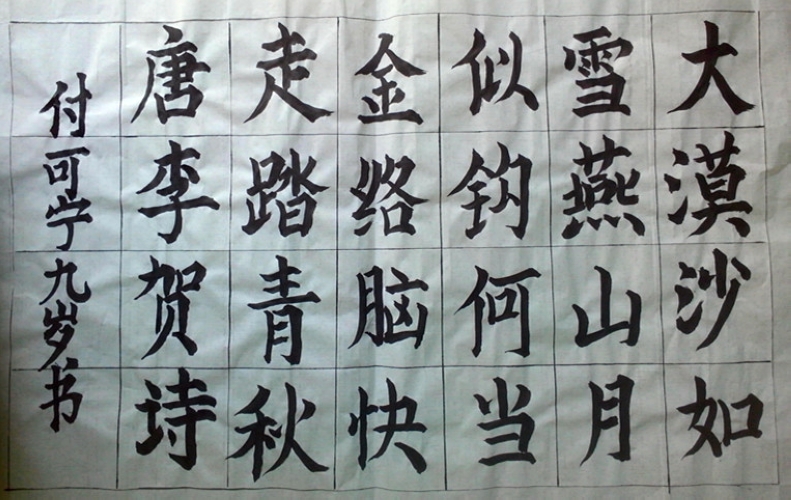 大漠沙如
雪燕山月
似钩何当
金络脑快
走踏青秋
唐李贺诗
付可宁九岁书